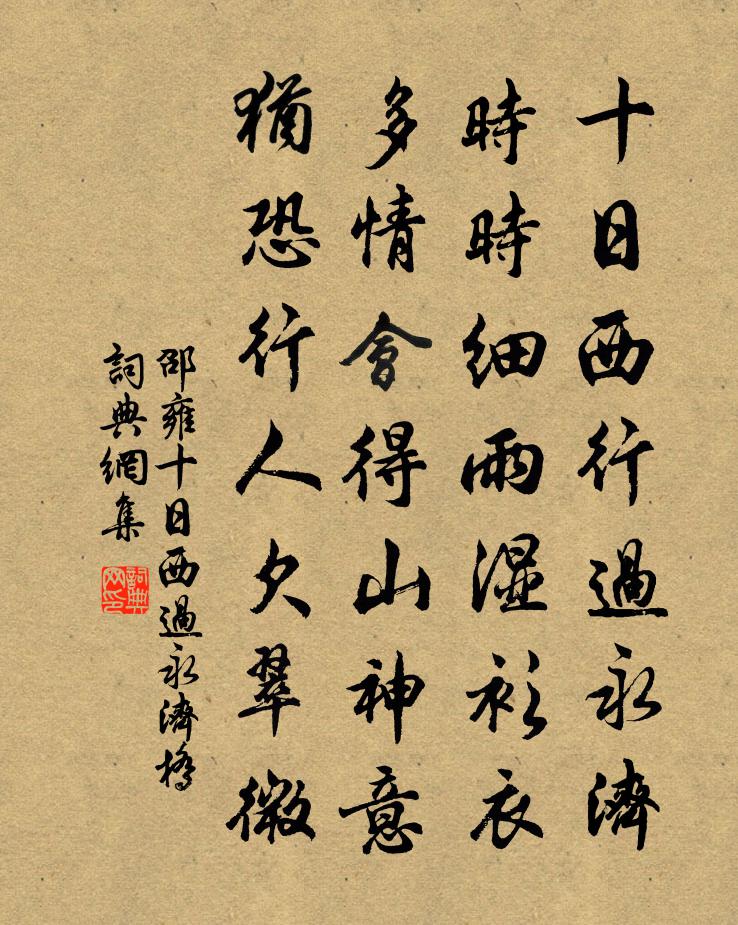 十日西行過永濟
時時細雨湿衫衣
多情會得山神意
猶恐行人欠翠微
邵雍十日西過永濟橋
詞典網集
詞典网印